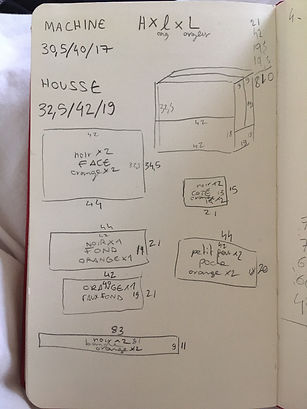 MACHINE
H x l x L
30,5/40/17
HOUSSE
32,5/42/19
21
42
19,5
32,5
42
19
42
noir x2
FACE
orange x2
32,5
34,5
44
noir x2
COTÉ
orange x2
15
21
44
42
NOIR x1
FOND
ORANGE x1
19
21
44
42
petit pois x2
poche
orange x2
20
42
ORANGE x1
FAUX FOND
19
21
83
noir x2 81
orange x2
9
11